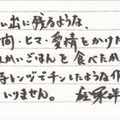 い出に残るような、
間・ヒマ・愛情をかけた
かいごはんを食べたか
存レンヅでチンしたような
いりません。